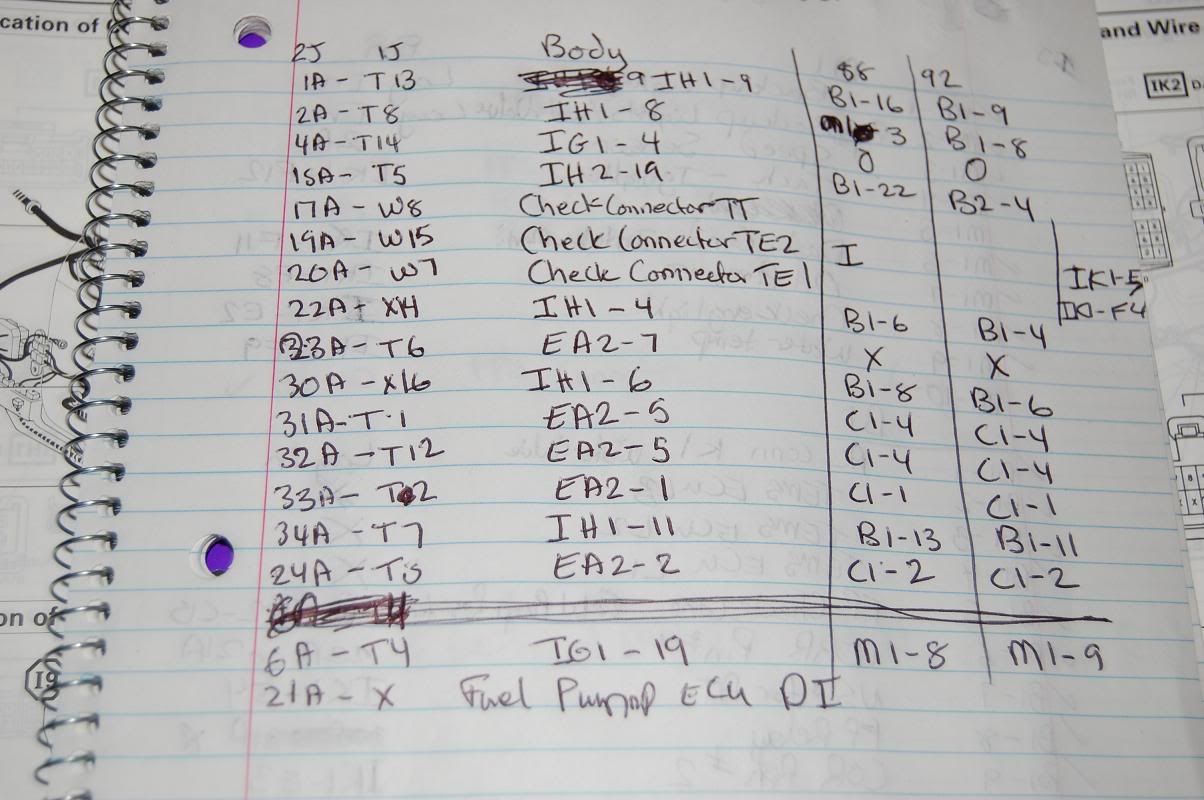 cation of
and Wire
IK2
2J 1J Body 88 92
1A - T13 9 IH1-9 B1-16 B1-9
2A - T8 IH1-8 3 B1-8
4A - T14 IG1-4 O O
15A - T5 IH2-19 B1-22 B2-4
17A - W8 Check Connector TT
19A - W15 Check Connector TE2 I
20A - W7 Check Connector TE1 IK1-5
22A - XH IH1-4 B1-6 B1-4
23A - T6 EA2-7 X X
30A - X16 IH1-6 B1-8 B1-6
31A - T1 EA2-5 C1-4 C1-4
32A - T12 EA2-5 C1-4 C1-4
33A - T2 EA2-1 C1-1 C1-1
34A - T7 IH1-11 B1-13 B1-11
24A - EA2-2 C1-2 C1-2
on of
6A - T4 IG1-19 M1-8 M1-9
21A - X Fuel Pump ECU DI
I9